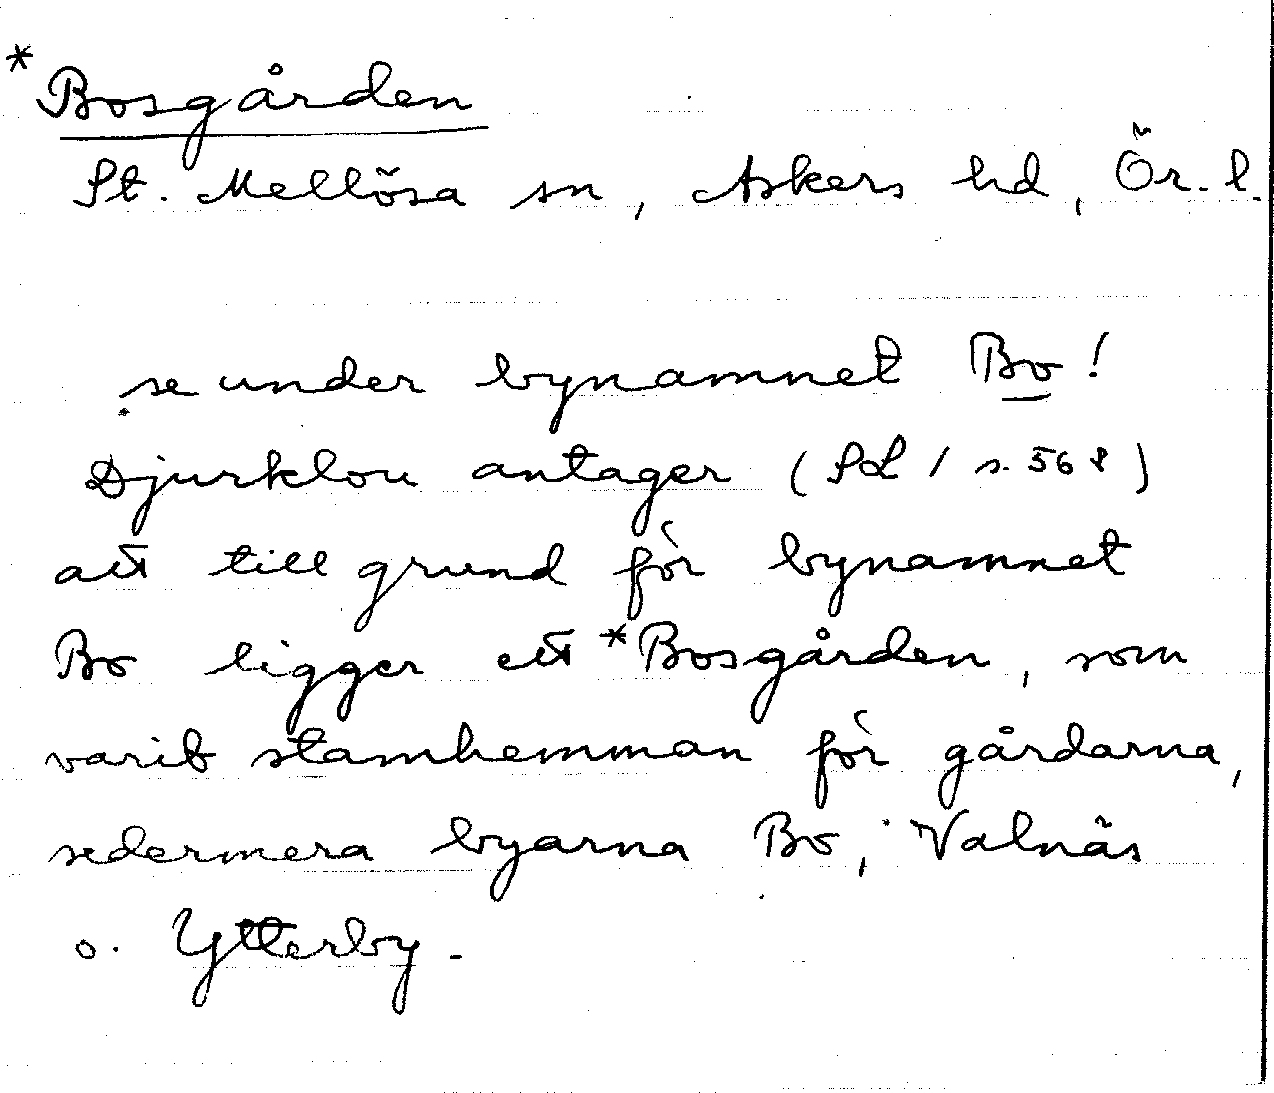 *Bosgården
St. Mellösa sn, Askers hd, Ör. l.
se under bynamnet Bo!
Djurklou antager (SL 1 s. 568)
att till grund för bynamnet
Bo ligger ett *Bosgården, som
varit stamhemman för gårdarna,
sedermera byarna Bo, Valnäs
o. Ytterby.